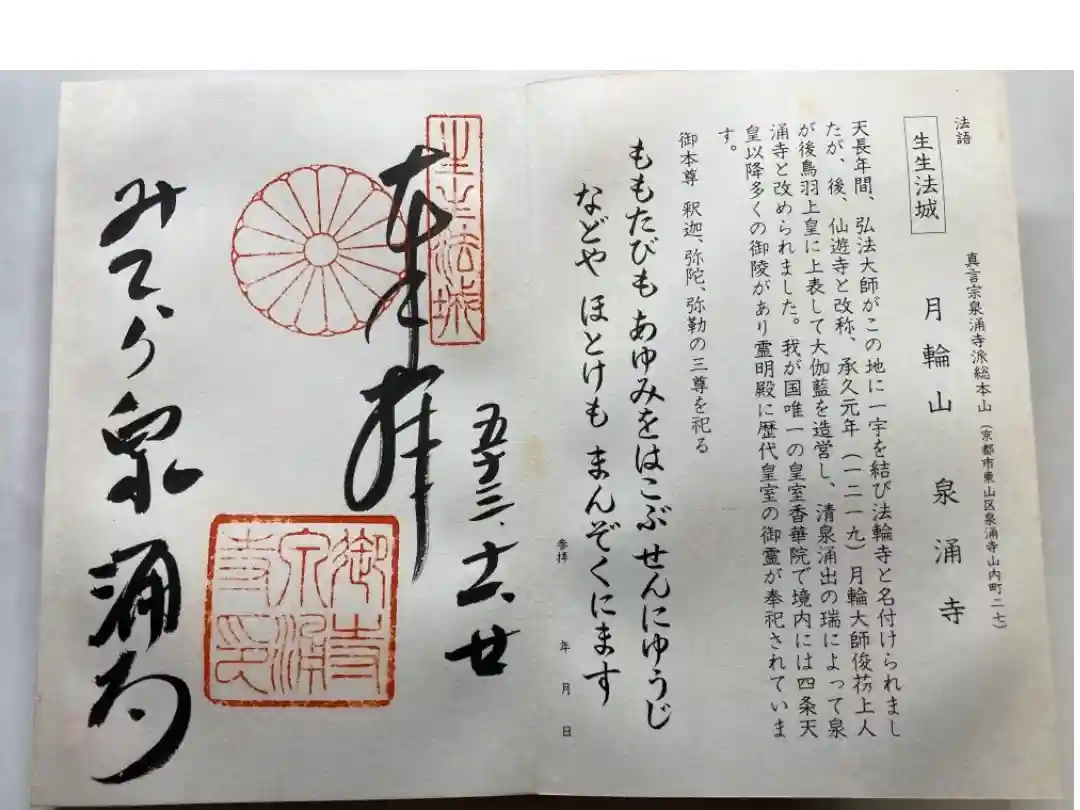 法語
生生法城
真言宗泉涌寺派総本山(京都市東山区泉涌寺山内町二七)
月輪山 泉涌寺
天長年間、弘法大師がこの地に一宇を結び法輪寺と名付けられまし
たが、後、仙遊寺と改称、承久元年(一二一九)月輪大師俊芿上人
が後鳥羽上皇に上表して大伽藍を造営し、清泉涌出の瑞によって泉
涌寺と改められました。我が国唯一の皇室香華院で境内には四条天
皇以降多くの御陵があり霊明殿に歴代皇室の御霊が奉祀されていま
す。
御本尊 釈迦、弥陀、弥勒の三尊を祀る
ももたびも あゆみをはこぶ せんにゆうじ
などや ほとけも まんぞくにます
参拝 年 月 日
生生法城
奉拝
五十三、十二、廿
御寺泉涌寺印
みてら泉涌寺